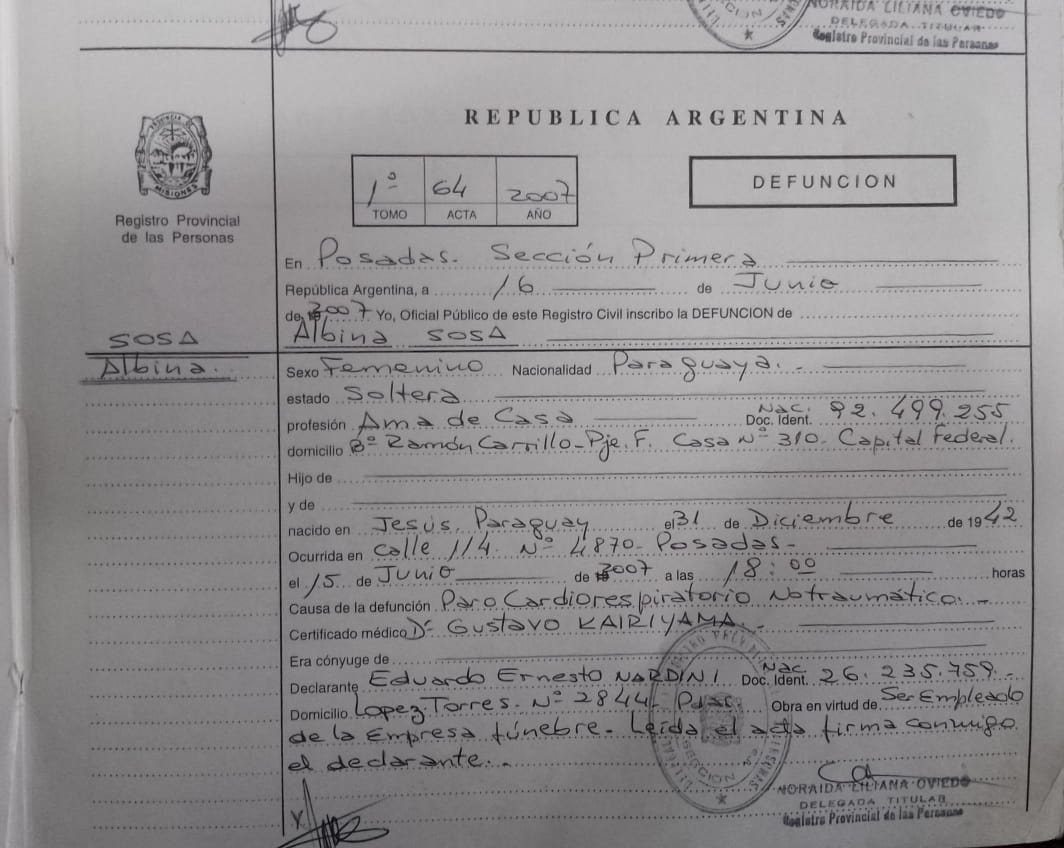 NORAIDA LILIANA OVIEDO
DELEGADA TITULAR
Registro Provincial de las Personas
REPUBLICA ARGENTINA
1º 64 2007
TOMO ACTA AÑO
DEFUNCION
MISIONES
Registro Provincial
de las Personas
En Posadas. Sección Primera
República Argentina, a 16 de Junio
de 2007 Yo, Oficial Público de este Registro Civil inscribo la DEFUNCION de
Albina SOSA
SOSA
Albina.
Sexo Femenino Nacionalidad Paraguaya.
estado Soltera
profesión Ama de Casa Doc. Ident. Nac. 92.499.255
domicilio Bº Ramón Carrillo-Pje. F. Casa Nº 310. Capital Federal.
Hijo de
y de
nacido en Jesús, Paraguay el 31 de Diciembre de 1942
Ocurrida en Calle 114. Nº 4870- Posadas-
el 15 de Junio de 2007 a las 18:00 horas
Causa de la defunción Paro Cardiorespiratorio No traumático.-
Certificado médico Dr Gustavo KAIRIYAMA.-
Era cónyuge de
Declarante Eduardo Ernesto NARDINI Doc. Ident. Nac 26.235.759.-
Domicilio Lopez Torres. Nº 2844- Pdas. Obra en virtud de Ser Empleado
de la Empresa fúnebre. Leída el acta firma conmigo
el declarante..-
NORAIDA LILIANA OVIEDO
DELEGADA TITULAR
Registro Provincial de las Personas